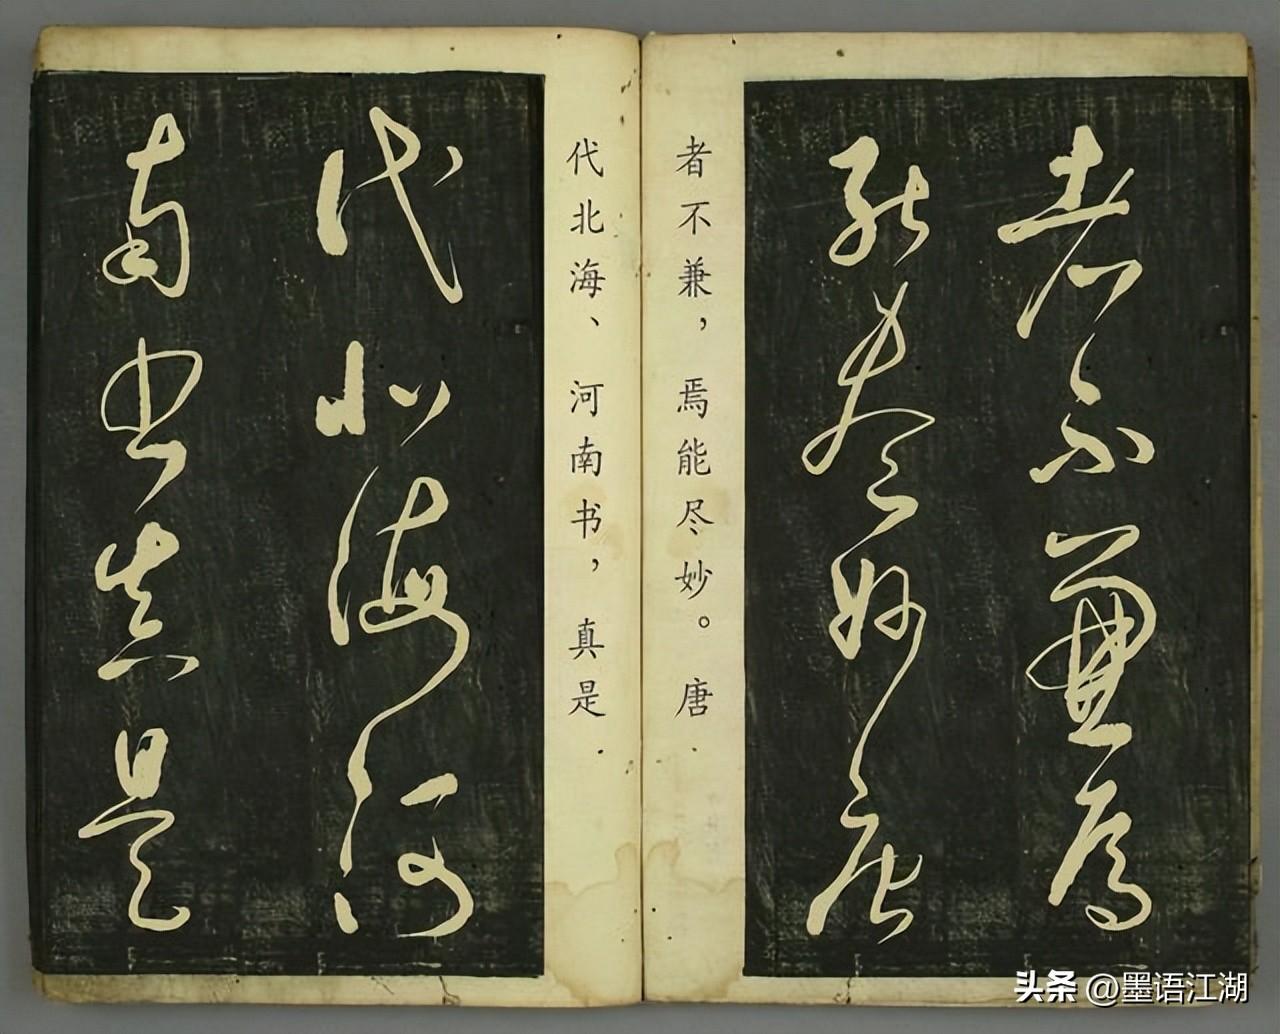 者不兼焉
能尽妙唐
者不兼，焉能尽妙。唐
代北海、河南书，真是
代北海河
南书真是
头条 @墨语江湖